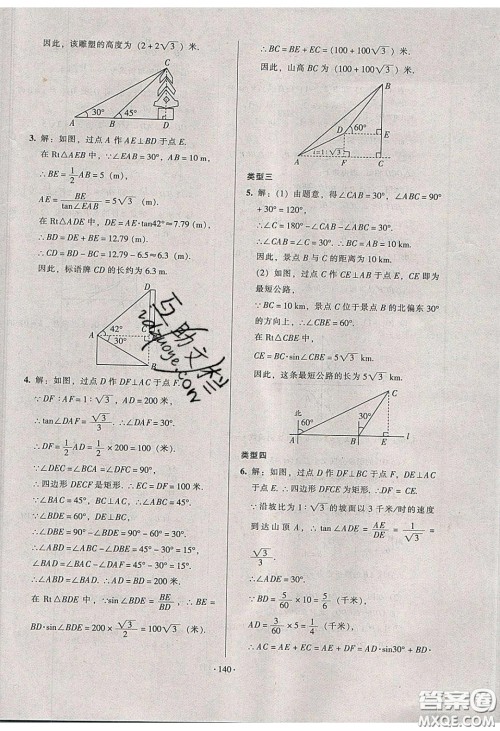 因此，该雕塑的高度为（2+2√3）米.
C
30°
45°
A
B
D
3. 解：如图，过点 A 作 AE⊥BD 于点 E.
在 Rt△AEB 中，∵∠EAB=30°，AB=10 m，
∴BE=1/2AB=5（m），
AE=BE/tan∠EAB=5√3（m），
在 Rt△ADE 中，DE=AE·tan42°≈7.79（m），
∴BD=DE+BE=12.79（m），
∴CD=BD-BC=12.79-6.5≈6.3（m），
因此，标语牌 CD 的长约为 6.3 m.
D
A
42°
30°
B
4. 解：如图，过点 D 作 DF⊥AC 于点 F.
∵DF∶AF=1∶√3，AD=200 米，
∴tan∠DAF=√3/3，∴∠DAF=30°，
∴DF=1/2AD=1/2×200=100（米），
∵∠DEC=∠BCA=∠DFC=90°，
∴四边形 DECF 是矩形. ∴EC=DF=100 米.
∵∠BAC=45°，BC⊥AC，∴∠ABC=45°.
∵∠BDE=60°，DE⊥BC，
∴∠DBE=90°-∠BDE=90°-60°=30°.
∴∠ABD=∠ABC-∠DBE=45°-30°=15°，
∠BAD=∠BAC-∠DAF=45°-30°=15°.
∴∠ABD=∠BAD. ∴AD=BD=200 米.
在 Rt△BDE 中，∵sin∠BDE=BE/BD，∴BE=
BD·sin∠BDE=200×√3/2=100√3（米）.
∴BC=BE+EC=（100+100√3）米.
因此，山高 BC 为（100+100√3）米.
B
D
60°
E
i=1∶√3
A
F
C
类型三
5. 解：（1）由题意，得∠CAB=30°，∠ABC=90°
+30°=120°，
∴∠C=180°-∠CAB-∠ABC=30°.
∴∠CAB=∠C=30°. ∴BC=AB=10 km.
因此，景点 B 与 C 的距离为 10 km.
（2）如图，过点 C 作 CE⊥AB 于点 E，CE 即为
最短公路，
∵BC=10 km，景点 C 位于景点 B 的北偏东 30°
的方向上，∴∠CBE=60°.
在 Rt△CBE 中，
CE=BC·sin∠CBE=5√3 km.
因此，这条最短公路的长为 5√3 km.
北
C
60°
30°
A
B
E
l
类型四
6. 解：如图，过点 D 作 DF⊥BC 于点 F，DE⊥AC
于 E. ∴四边形 DFCE 为矩形. ∴DF=CE.
∵沿坡比为 1∶√3 的坡面以 3 千米/时的速度
到达山顶 A，∴tan∠ADE=AE/DE=1/√3=
√3/3.
∴∠ADE=30°.
∵BD=5/60×10=5/6（千米），
AD=3/60×5=1/4（千米），
∴AC=AE+EC=AE+DF=AD·sin30°+BD·
·140·
互助文栏
zdzuoye.com
答案圈
MXQE.COM